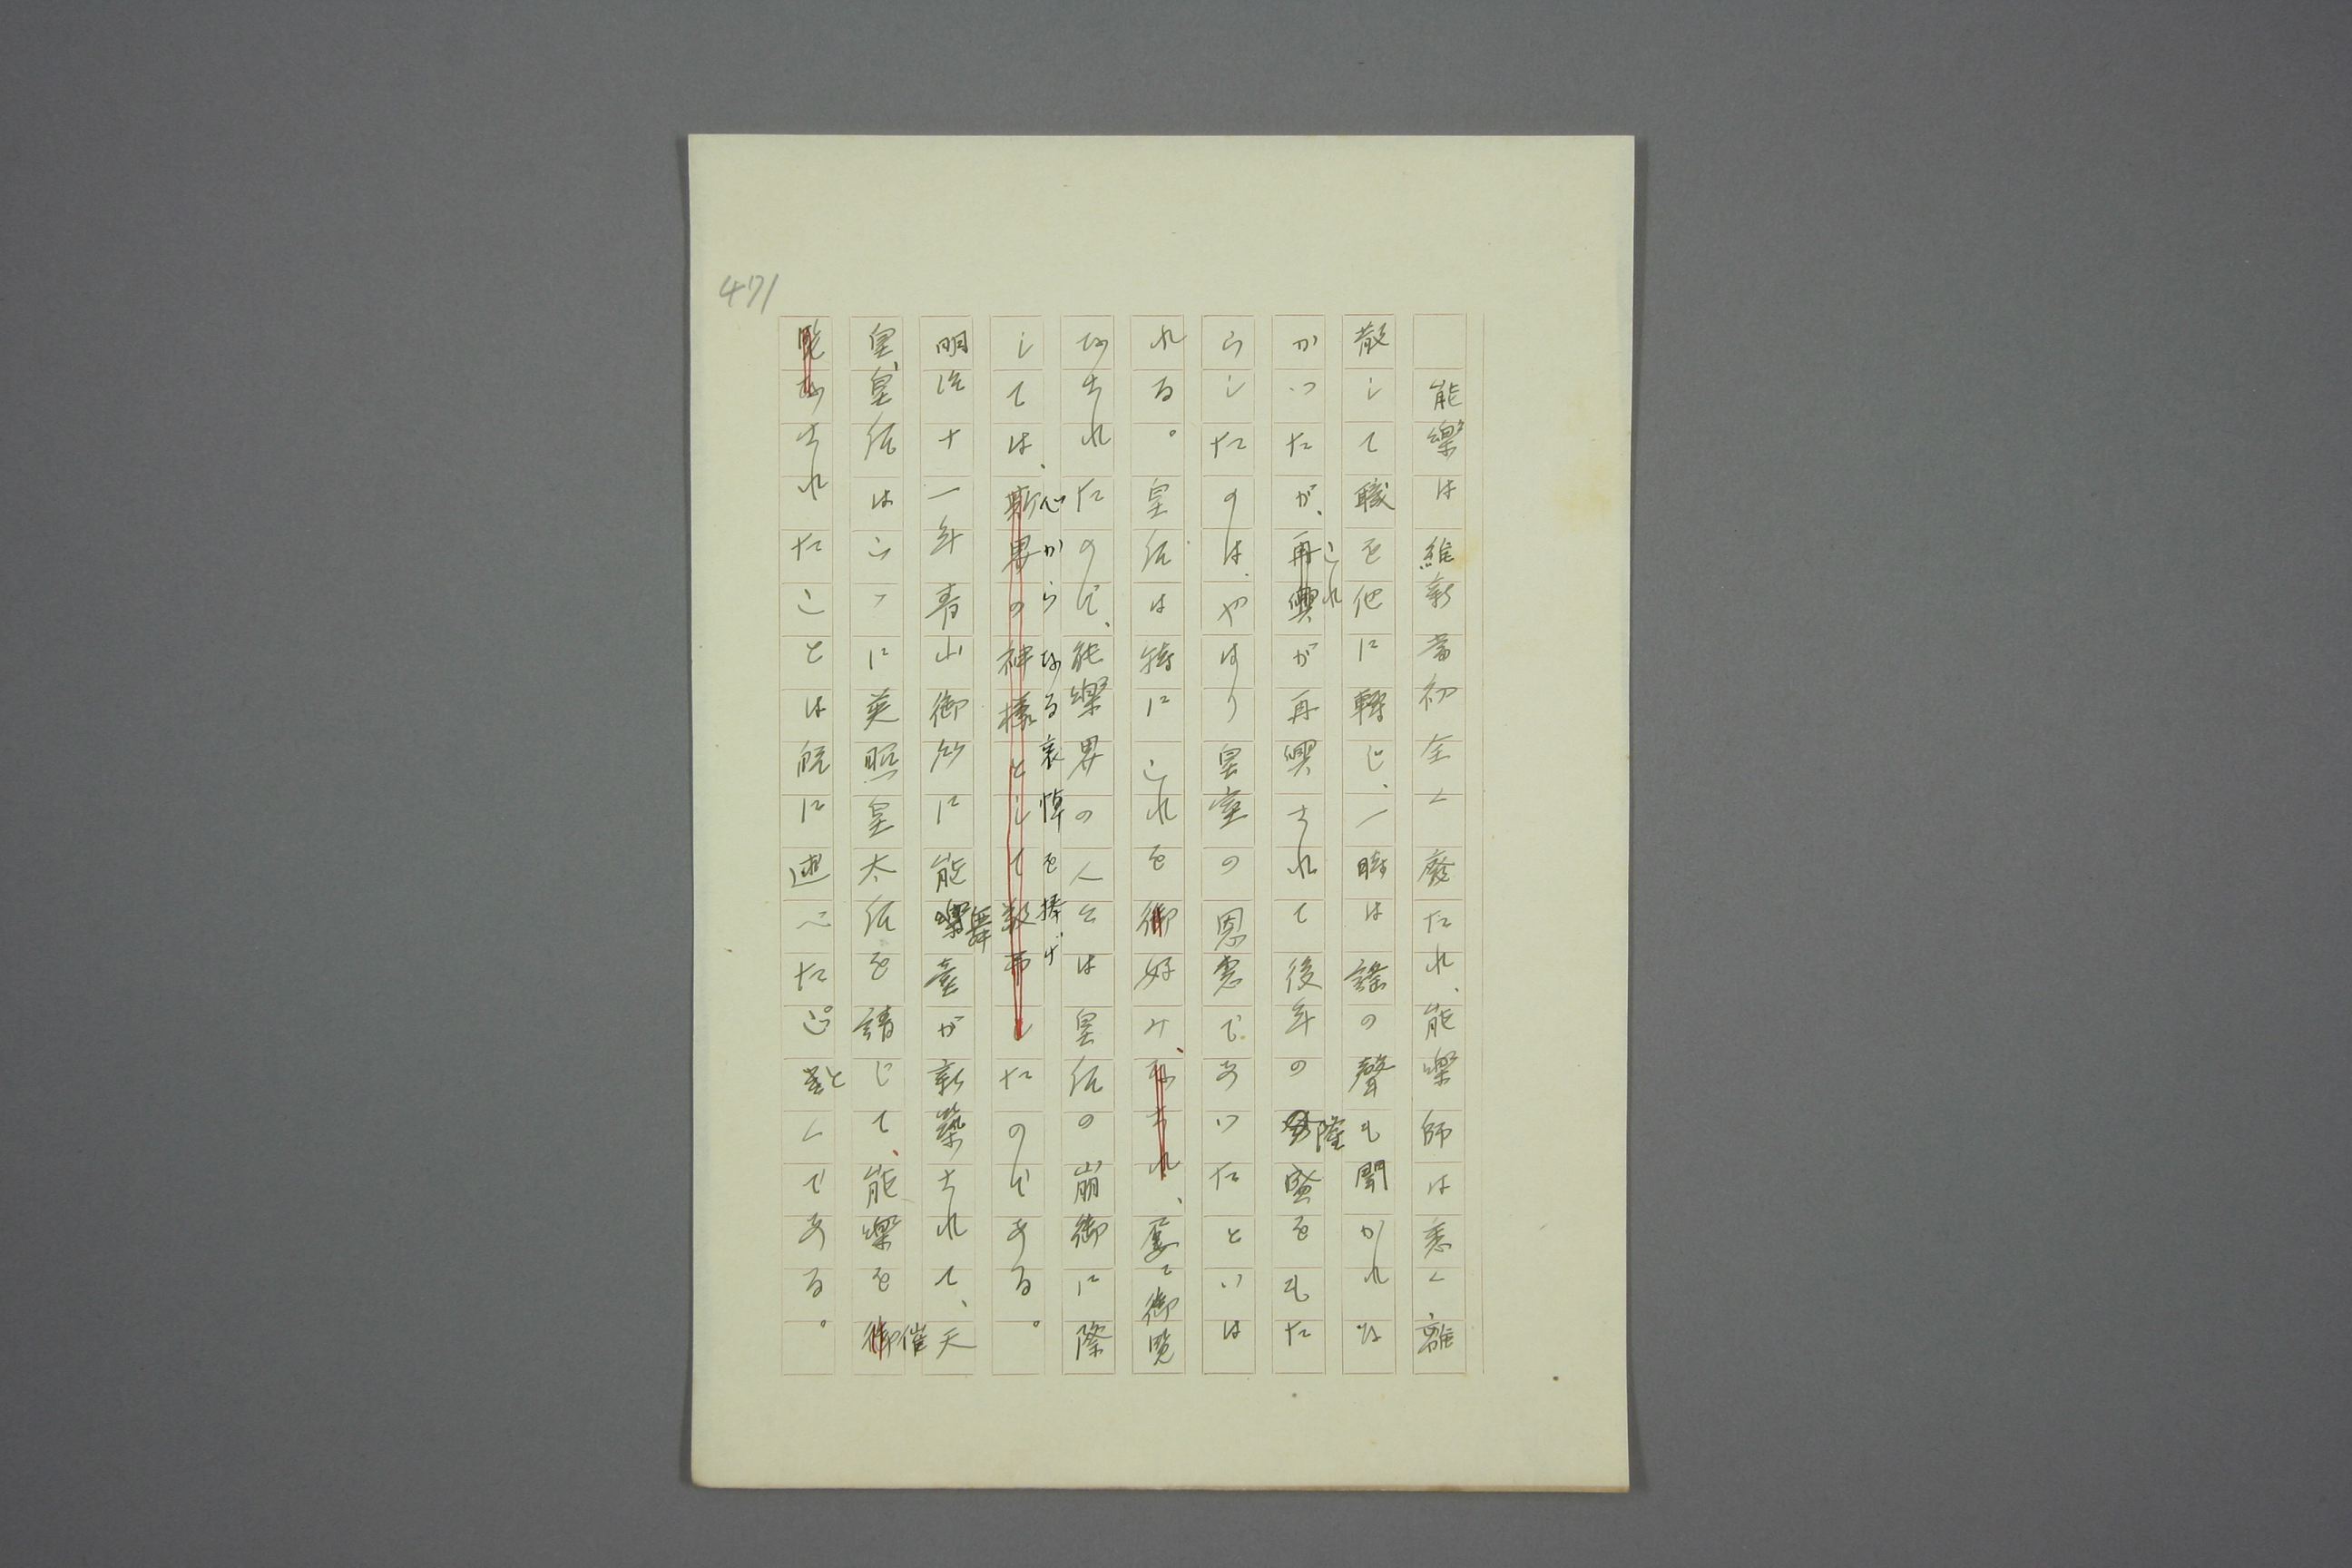 471
能樂は維新當初全く廢たれ、能樂師は悉く離
散して職を他に轉じ、一時は謠の聲も聞かれな
かつたが、これが再興されて後年の隆盛をもた
らしたのは、やはり皇室の恩惠であつたといは
れる。皇后は特にこれを好み、屡〻御覽
なされたので、能樂界の人々は皇后の崩御に際
しては、心からなる哀悼を捧げたのである。
明治十一年青山御所に能舞臺が新築されて、天
皇、皇后はこゝに英照皇太后を請じて、能樂を催
されたことは既に述べたごとくである。